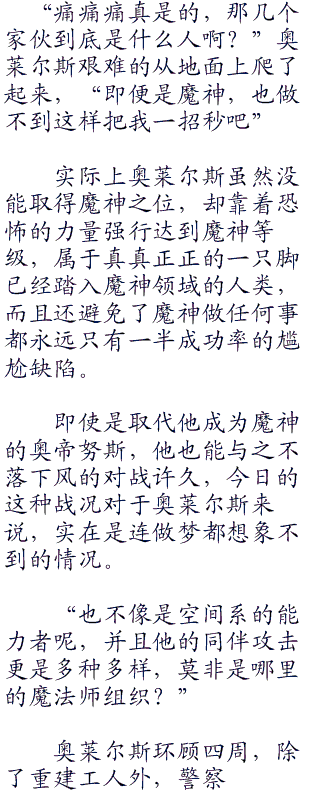 “痛痛痛真是的，那几个
家伙到底是什么人啊？”奥
莱尔斯艰难的从地面上爬了
起来，“即便是魔神，也做
不到这样把我一招秒吧”
实际上奥莱尔斯虽然没
能取得魔神之位，却靠着恐
怖的力量强行达到魔神等
级，属于真真正正的一只脚
已经踏入魔神领域的人类，
而且还避免了魔神做任何事
都永远只有一半成功率的尴
尬缺陷。
即使是取代他成为魔神
的奥帝努斯，他也能与之不
落下风的对战许久，今日的
这种战况对于奥莱尔斯来
说，实在是连做梦都想象不
到的情况。
“也不像是空间系的能
力者呢，并且他的同伴攻击
更是多种多样，莫非是哪里
的魔法师组织？”
奥莱尔斯环顾四周，除
了重建工人外，警察